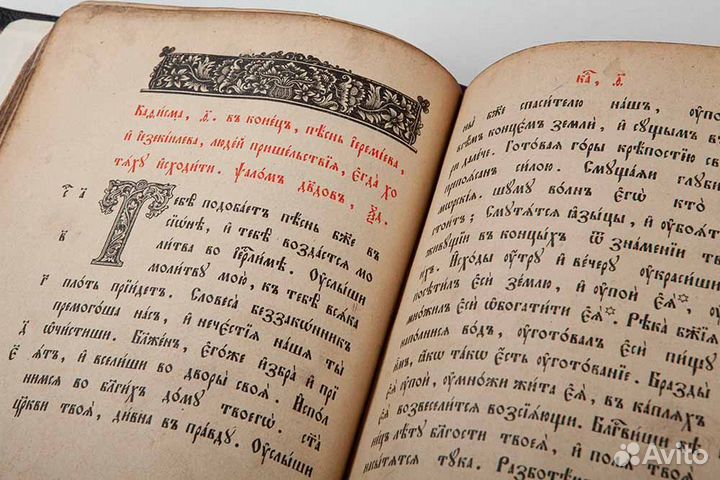 Каѳисма, ѳ҃. въ коне́цъ, пѣ́снь і҆еремі́ева,
и҆ і҆езекі́илева, люде́й прише́льствїѧ, є҆гда̀ хо
тѧ́хꙋ и҆сходи́ти. ѱало́мъ дв҃довъ, ѯ҃д.
Тебѣ̀ подоба́етъ пѣ́снь бж҃е въ
сїѡ́нѣ, и҆ тебѣ̀ возда́стсѧ мо
ли́тва во і҆ер҇ли́мѣ. Оу҆слы́ши
моли́твꙋ мою̀, къ тебѣ̀ всѧ́ка
пло́ть прїи́детъ. Словеса̀ беззако́нникъ
премого́ша на́съ, и҆ нече́стїѧ на́ша ты̀
ѡ҆чи́стиши. Бл҃же́нъ, є҆го́же и҆збра̀ и҆ прї
ѧ́тъ, и҆ всели́ши во дворы̀ своѧ̀. И҆спо́л
нимсѧ во бл҃ги́хъ до́мꙋ твоегѡ̀. ст҃а
цр҃кви твоѧ̀, ди́вна въ пра́вдꙋ. Оу҆слы́ши
ка҃, ѳ҃.
ны̀ бж҃е спаси́телю на́шъ, оу҆по
всѣ́мъ конце́мъ землѝ, и҆ су́щымъ въ
ри дале́че. Гото́вaѧ го́ры крѣ́постїю св
препоѧ́санъ си́лою. Смуща́ѧи глꙋби
морскі́ѧ. шу́мꙋ во́лнъ є҆гѡ̀ кто̀
стои́тъ; Смѧтꙋ́тсѧ ꙗ҆зы́цы, и҆ оу҆боѧ́т
живꙋ́щїи въ конца́хъ ѿ зна́менїи тв
и́хъ. И҆схо́ды оу҆́трꙋ и҆ ве́черꙋ оу҆краси́ши
посѣти́лъ є҆сѝ зе́млю, и҆ оу҆поѝ ю҆̀.
мно́жилъ є҆сѝ ѡ҆богати́ти є҆ѧ̀. Рѣка̀ бж҃їѧ
напо́лнисѧ во́дъ, оу҆гото́валъ є҆сѝ пи́щꙋ
и́мъ, ꙗ҆́кѡ та́кѡ є҆́сть оу҆готова́нїе. Бразды̀
є҆ѧ̀ оу҆по́й, оу҆мно́жи жи́та є҆ѧ̀, въ ка́плѧхъ
є҆ѧ̀ возвесели́тсѧ возсїѧ́ющи. Бл҃гви́ши вѣ
не́цъ лѣ́тꙋ бл҃гости твоеѧ̀, и҆ полѧ̀ твоѧ̀
насы́тѧтсѧ тꙋ́ка. Разботѣ́ю
Avito